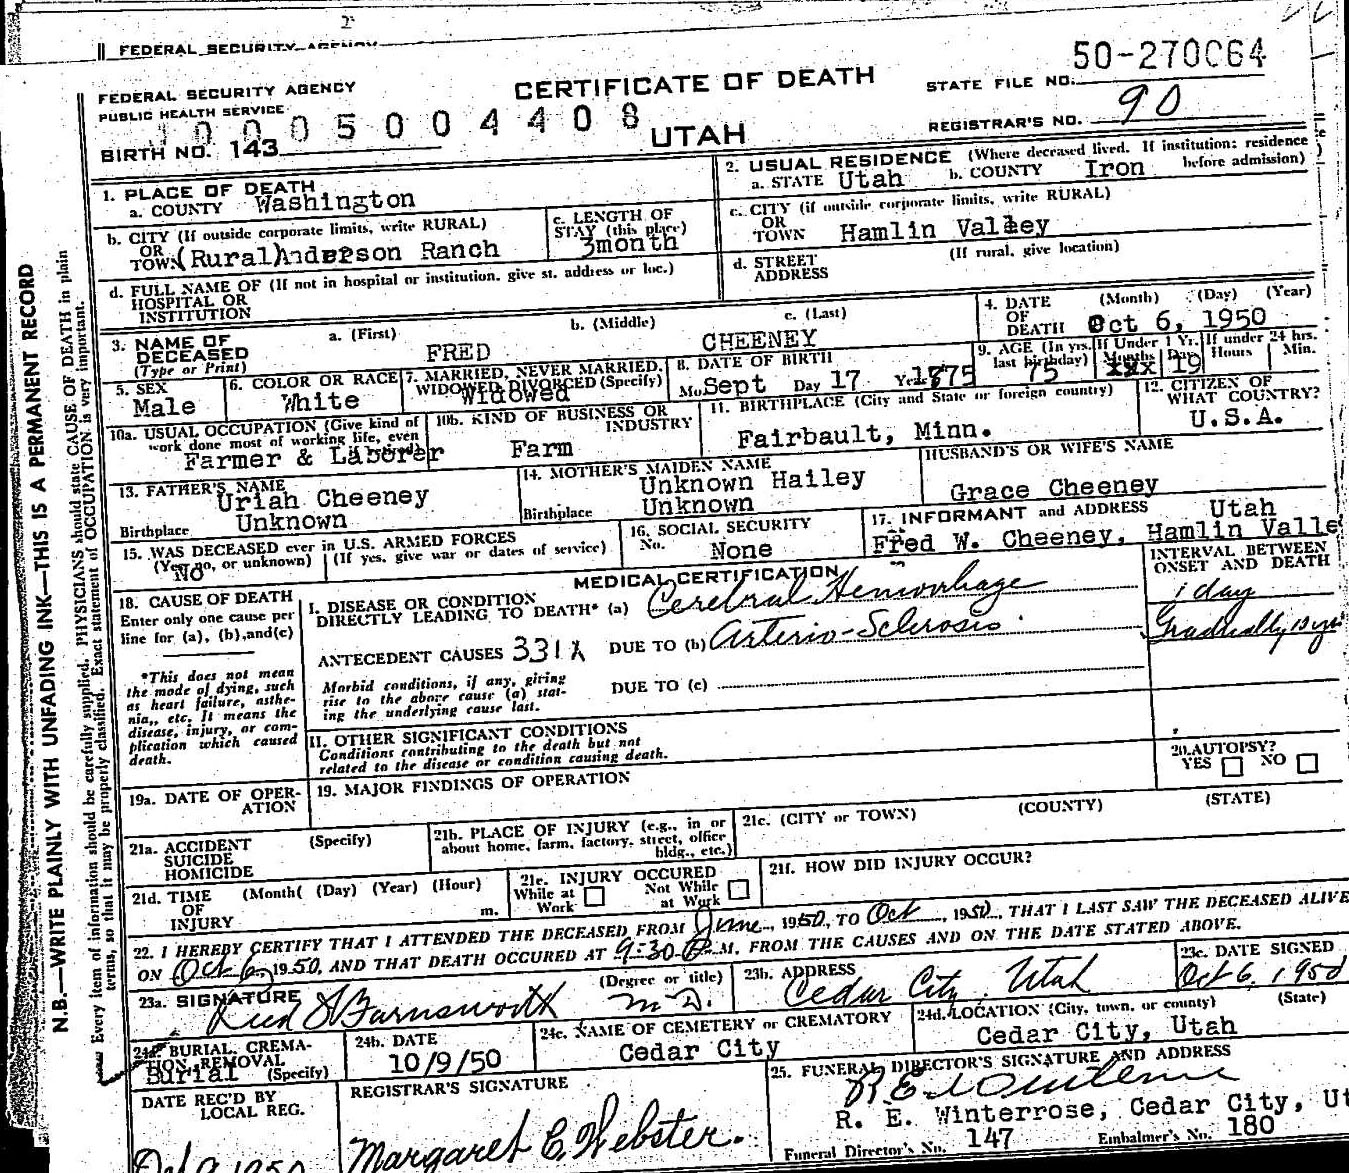 FEDERAL SECURITY AGENCY
FEDERAL SECURITY AGENCY
PUBLIC HEALTH SERVICE
CERTIFICATE OF DEATH
STATE FILE NO. 50-270064
0005004408
BIRTH NO. 143
UTAH
REGISTRAR'S NO. 90
1. PLACE OF DEATH
a. COUNTY Washington
b. CITY (If outside corporate limits, write RURAL)
OR
TOWN (Rural) Anderson Ranch
c. LENGTH OF
STAY (this place)
3month
d. FULL NAME OF (If not in hospital or institution, give st. address or loc.)
HOSPITAL OR
INSTITUTION
2. USUAL RESIDENCE (Where deceased lived. If institution: residence
before admission)
a. STATE Utah b. COUNTY Iron
c. CITY (if outside corporate limits, write RURAL)
OR
TOWN Hamlin Valley
d. STREET (If rural, give location)
ADDRESS
3. NAME OF
DECEASED
(Type or Print)
a. (First) b. (Middle) c. (Last)
FRED CHEENEY
4. DATE (Month) (Day) (Year)
OF
DEATH Oct 6, 1950
5. SEX
Male
6. COLOR OR RACE
White
7. MARRIED, NEVER MARRIED,
WIDOWED DIVORCED (Specify)
Widowed
8. DATE OF BIRTH
Mo. Sept Day 17 Year 1875
9. AGE (In yrs.
last birthday)
75
If Under 1 Yr.
Months Days
xxx 19
If under 24 hrs.
Hours Min.
10a. USUAL OCCUPATION (Give kind of
work done most of working life, even
Farmer & Laborer
10b. KIND OF BUSINESS OR
INDUSTRY
Farm
11. BIRTHPLACE (City and State or foreign country)
Fairbault, Minn.
12. CITIZEN OF
WHAT COUNTRY?
U.S.A.
13. FATHER'S NAME
Uriah Cheeney
Birthplace Unknown
14. MOTHER'S MAIDEN NAME
Unknown Hailey
Birthplace Unknown
HUSBAND'S OR WIFE'S NAME
Grace Cheeney
15. WAS DECEASED ever in U.S. ARMED FORCES
(Yes, no, or unknown) (If yes, give war or dates of service)
No
16. SOCIAL SECURITY
No. None
17. INFORMANT and ADDRESS Utah
Fred W. Cheeney, Hamlin Valle
MEDICAL CERTIFICATION
INTERVAL BETWEEN
ONSET AND DEATH
18. CAUSE OF DEATH
Enter only one cause per
line for (a), (b), and (c)
*This does not mean
the mode of dying, such
as heart failure, asthe-
nia,, etc. It means the
disease, injury, or com-
plication which caused
death.
I. DISEASE OR CONDITION
DIRECTLY LEADING TO DEATH* (a) Cerebral Hemorrhage 1 day
ANTECEDENT CAUSES 331X DUE TO (b) Arterio-Sclerosis. Gradually
Morbid conditions, if any, giving
rise to the above cause (a) stat-
ing the underlying cause last.
DUE TO (c)
II. OTHER SIGNIFICANT CONDITIONS
Conditions contributing to the death but not
related to the disease or condition causing death.
20. AUTOPSY?
YES NO
19a. DATE OF OPER-
ATION
19. MAJOR FINDINGS OF OPERATION
21a. ACCIDENT (Specify)
SUICIDE
HOMICIDE
21b. PLACE OF INJURY (e.g., in or
about home, farm, factory, street, office
bldg., etc.)
21c. (CITY or TOWN) (COUNTY) (STATE)
21d. TIME (Month( (Day) (Year) (Hour)
OF
INJURY m.
21e. INJURY OCCURED
While at Work Not While at Work
21f. HOW DID INJURY OCCUR?
22. I HEREBY CERTIFY THAT I ATTENDED THE DECEASED FROM June, 1950, TO Oct, 1950, THAT I LAST SAW THE DECEASED ALIVE
ON Oct 6, 1950, AND THAT DEATH OCCURED AT 9:30 P.M. FROM THE CAUSES AND ON THE DATE STATED ABOVE.
23a. SIGNATURE (Degree or title)
Farnsworth M.D.
23b. ADDRESS
Cedar City, Utah
23c. DATE SIGNED
Oct 6, 1950
24a. BURIAL, CREMA-
TION, REMOVAL
Burial (Specify)
24b. DATE
10/9/50
24c. NAME OF CEMETERY or CREMATORY
Cedar City
24d. LOCATION (City, town, or county) (State)
Cedar City, Utah
DATE REC'D BY
LOCAL REG.
1950
REGISTRAR'S SIGNATURE
Margaret E. Webster.
25. FUNERAL DIRECTOR'S SIGNATURE AND ADDRESS
R. E. Winterrose
R. E. Winterrose, Cedar City, Ut
Funeral Director's No. 147 Embalmer's No. 180
N.B.—WRITE PLAINLY WITH UNFADING INK—THIS IS A PERMANENT RECORD
Every item of information should be carefully supplied. PHYSICIANS should state CAUSE OF DEATH in plain
terms, so that it may be properly classified. Exact statement of OCCUPATION is very important.